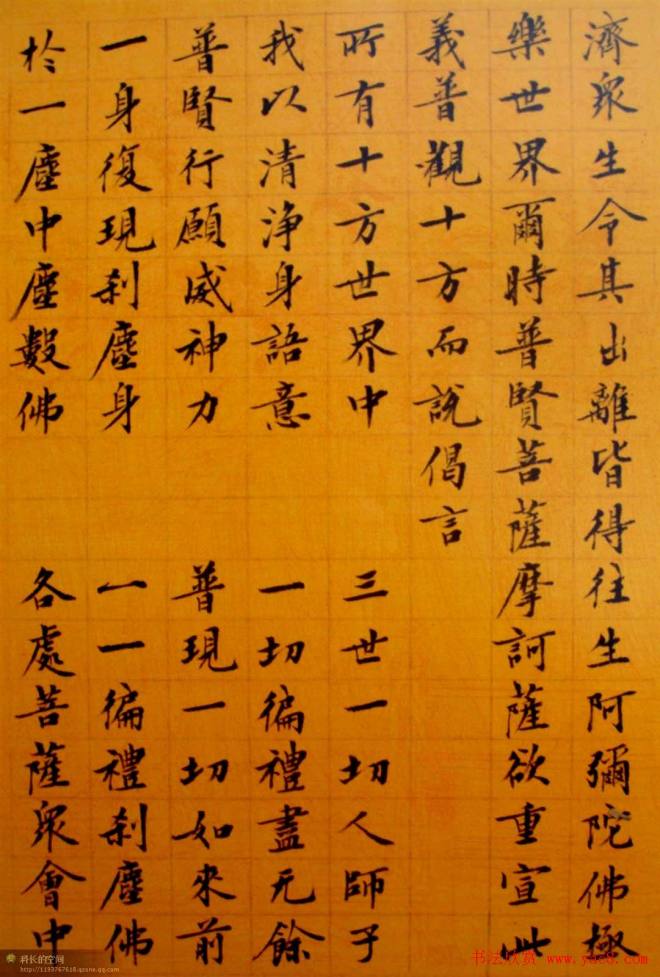 濟眾生令其出離皆得往生阿彌陀佛極
樂世界爾時普賢菩薩摩訶薩欲重宣此
義普觀十方而說偈言
所有十方世界中 三世一切人師子
我以清淨身語意 一切徧禮盡无餘
普賢行願威神力 普現一切如來前
一身復現剎塵身 一一徧禮剎塵佛
於一塵中塵數佛 各處菩薩眾會中
科长的空间
http://1193767618.qzone.qq.com
书法欣赏 www.yac8.com